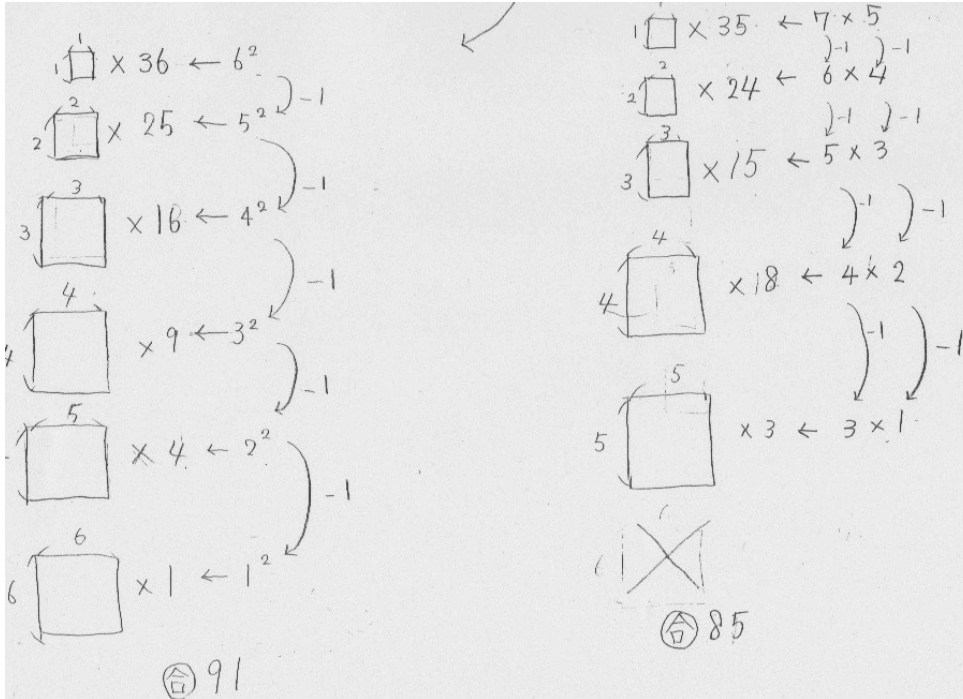 1
1 × 36 ← 6²
-1
2
2 × 25 ← 5²
-1
3
3 × 16 ← 4²
-1
4
4 × 9 ← 3²
-1
5
× 4 ← 2²
-1
6
6 × 1 ← 1²
合 91
1 × 35 ← 7 × 5
-1 -1
2
2 × 24 ← 6 × 4
-1 -1
3
3 × 15 ← 5 × 3
-1 -1
4
4 × 18 ← 4 × 2
-1 -1
5
5 × 3 ← 3 × 1
合 85